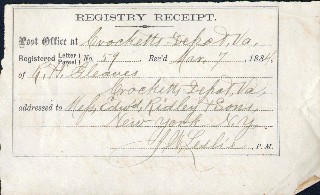 REGISTRY RECEIPT.
Post Office at Crocketts Depot, Va,
Registered Letter Parcel No. 59 Rec'd Mar. 7, 1884.
of R. H. Gleaves
Crocketts Depot, Va
addressed to Mess Edwd. Ridley & Sons,
New York N.Y.
Leslie P. M.